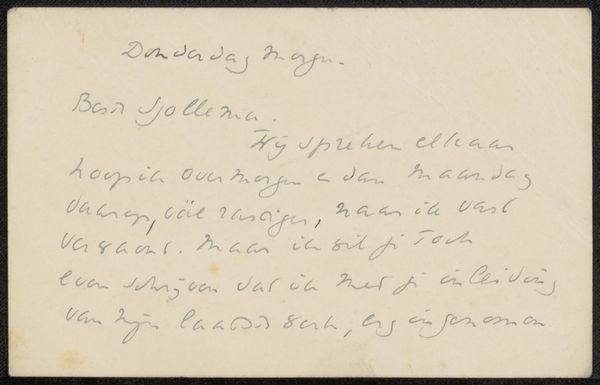 Donderdag morgen.
Beste Sjollema.
Wij spreken elkaar
hoop ik overmorgen en dan maandag
daarop, véél rustiger, naar ik vast
verwacht. Maar ik wil je toch
even schrijven dat ik met je inleiding
van mijn laatste werk, erg ingenomen